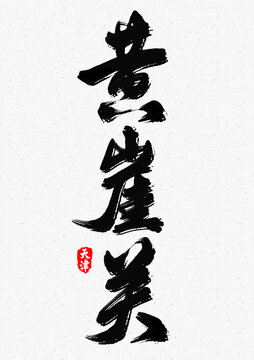 黄崖关
天津